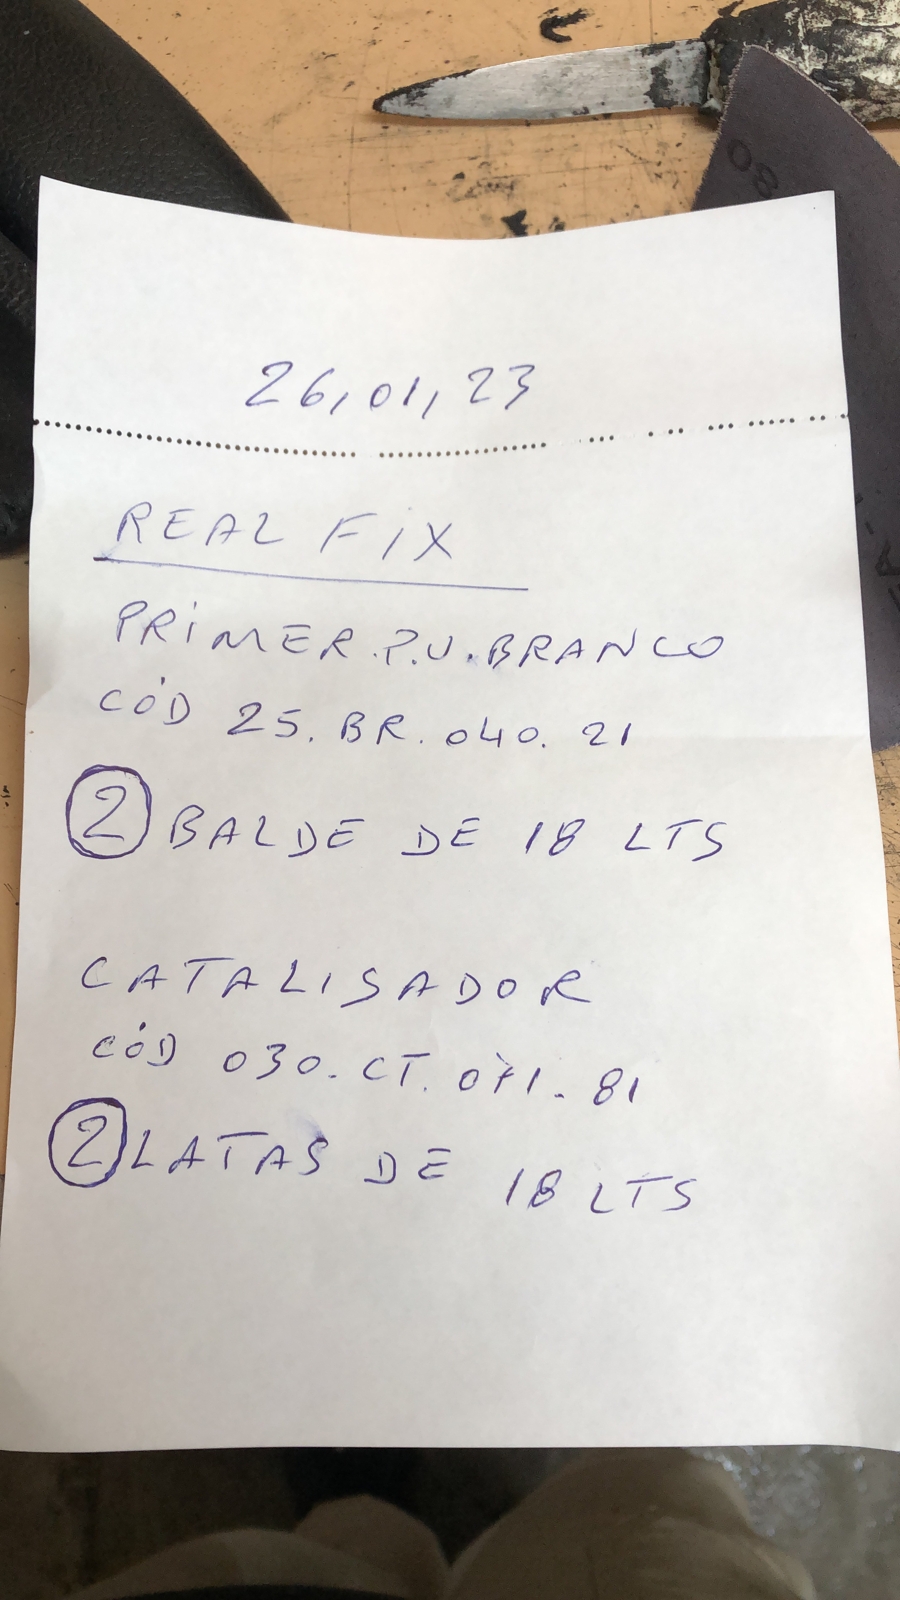 26,01,23
REAL FIX
PRIMER.P.U.BRANCO
CÓD 25.BR.040.21
2 BALDE DE 18 LTS
CATALISADOR
CÓD 030.CT.071.81
2 LATAS DE 18 LTS
80